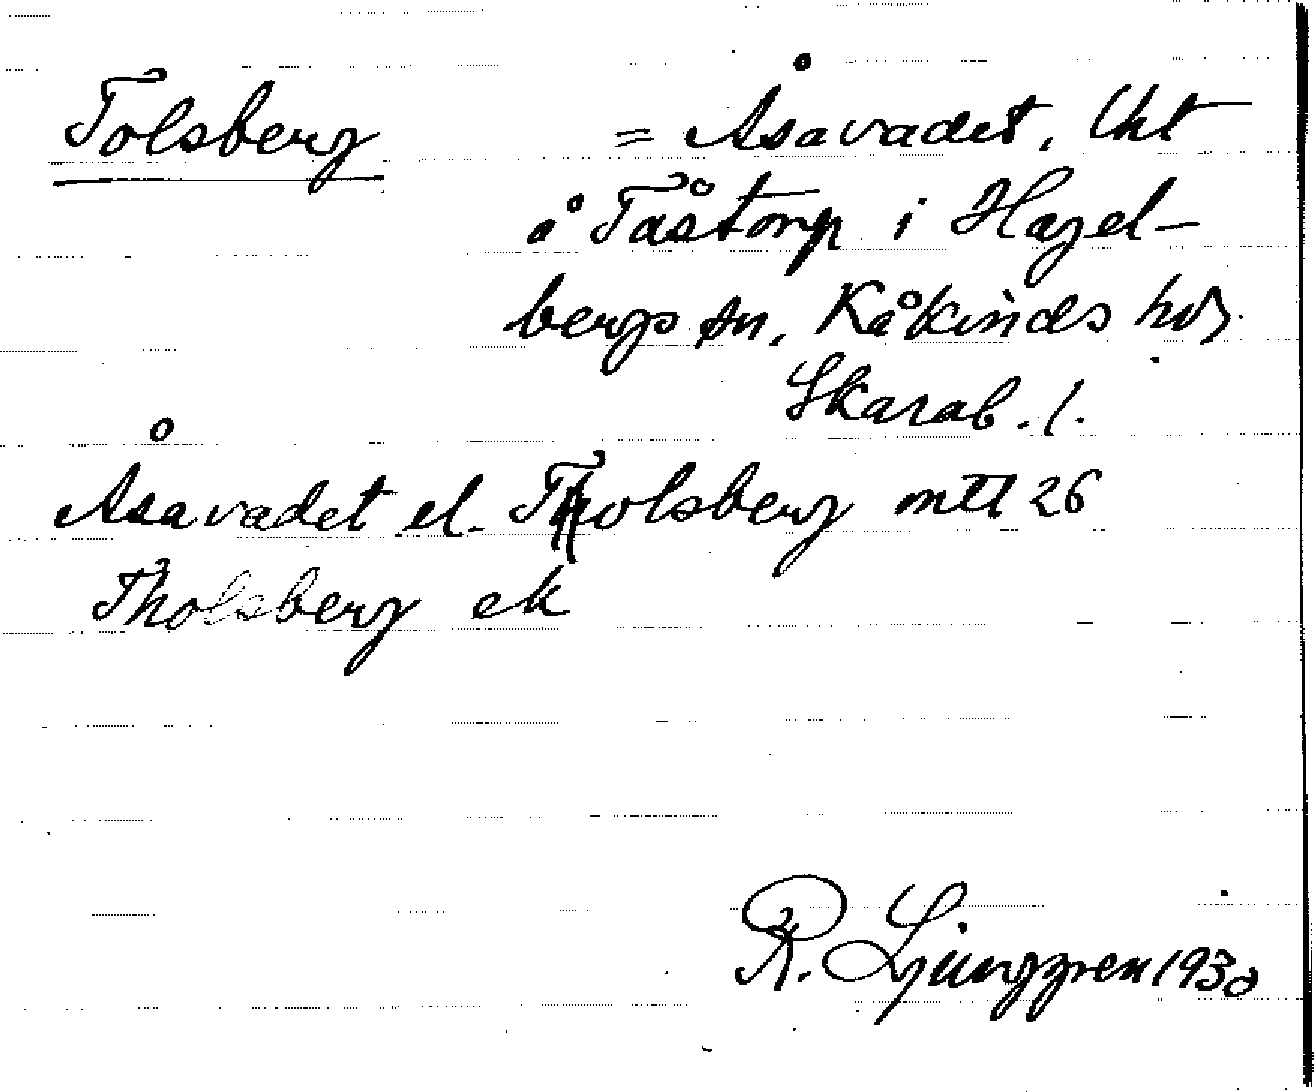 Tolsberg = Åsavadet, lht
å Tåstorp i Hagel-
bergs sn, Kåkinds hd,
Skarab. l.
Åsavadet el. Tholsberg mtl 26
Tholsberg ek
R. Ljunggren 1930